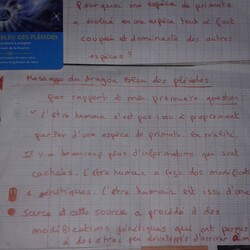 Pourquoi une espèce de primate
a évolué en une espèce tout à fait
coupée et dominante des autres
espèces ?
BLEU DES PLÉIADES
Message du Dragon bleu des pléiades
par rapport à ma première question
"L'être humain n'est pas issu à proprement
parler d'une espèce de primate. En réalité,
Il y a beaucoup plus d'informations qui sont
cachées. L'être humain a reçu des modifications
génétiques. L'être humain est issu d'une
source et cette source a procédé à des
modifications génétiques qui ont permis
à des êtres peu développés d'arriver à